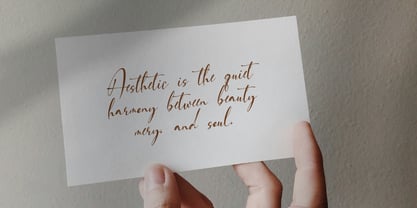 Aesthetic is the quiet
harmony between beauty
mery, and soul.